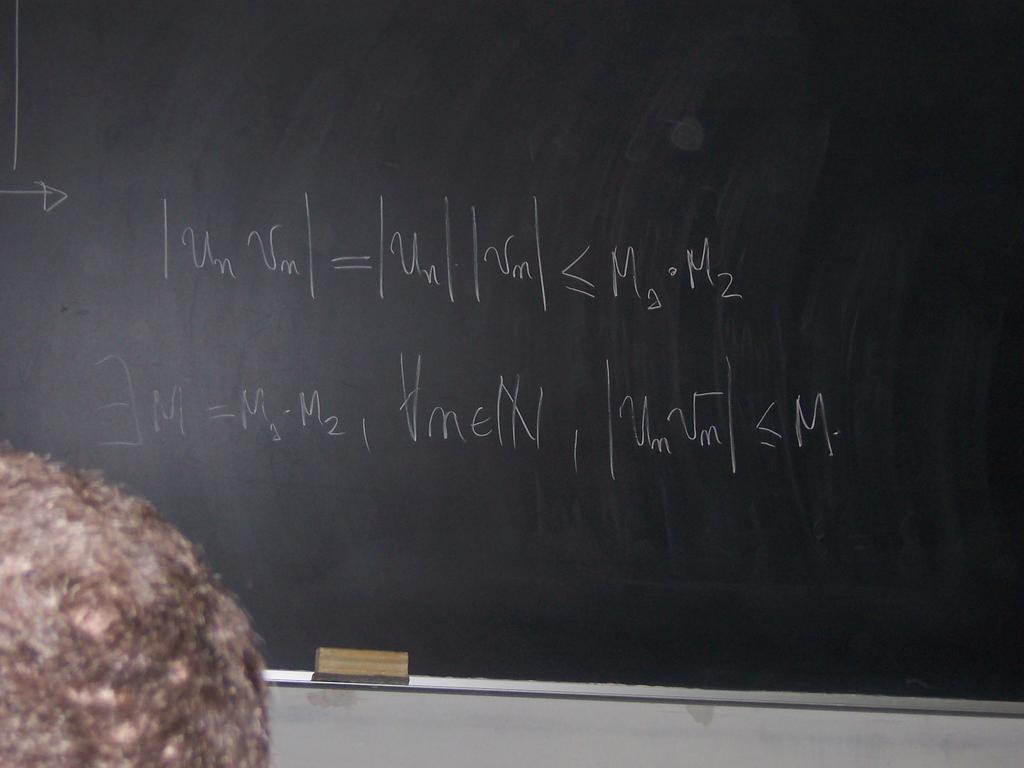 |uₙ vₙ| = |uₙ|·|vₙ| ≤ M₁·M₂
∃ M = M₁·M₂, ∀n∈ℕ, |uₙ vₙ| ≤ M.